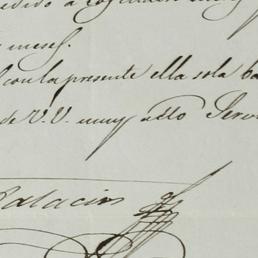 meses.
con la presente ella sola ba
de V.V. muy atto Serv
Palacios